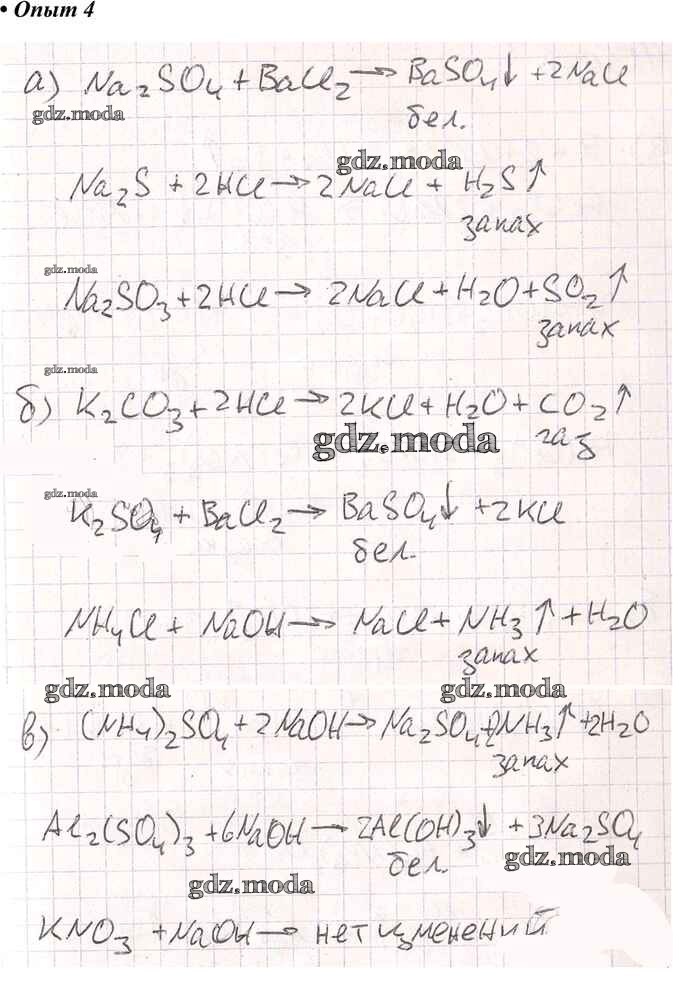 • Опыт 4
а) Na₂SO₄ + BaCl₂ → BaSO₄↓ + 2NaCl
gdz.moda
бел.
gdz.moda
Na₂S + 2HCl → 2NaCl + H₂S↑
запах
gdz.moda
Na₂SO₃ + 2HCl → 2NaCl + H₂O + SO₂↑
запах
gdz.moda
б) K₂CO₃ + 2HCl → 2KCl + H₂O + CO₂↑
gdz.moda газ
gdz.moda
K₂SO₄ + BaCl₂ → BaSO₄↓ + 2KCl
бел.
NH₄Cl + NaOH → NaCl + NH₃↑ + H₂O
запах
gdz.moda gdz.moda
в) (NH₄)₂SO₄ + 2NaOH → Na₂SO₄ + 2NH₃↑ + 2H₂O
запах
Al₂(SO₄)₃ + 6NaOH → 2Al(OH)₃↓ + 3Na₂SO₄
бел. gdz.moda
gdz.moda
KNO₃ + NaOH → нет изменений